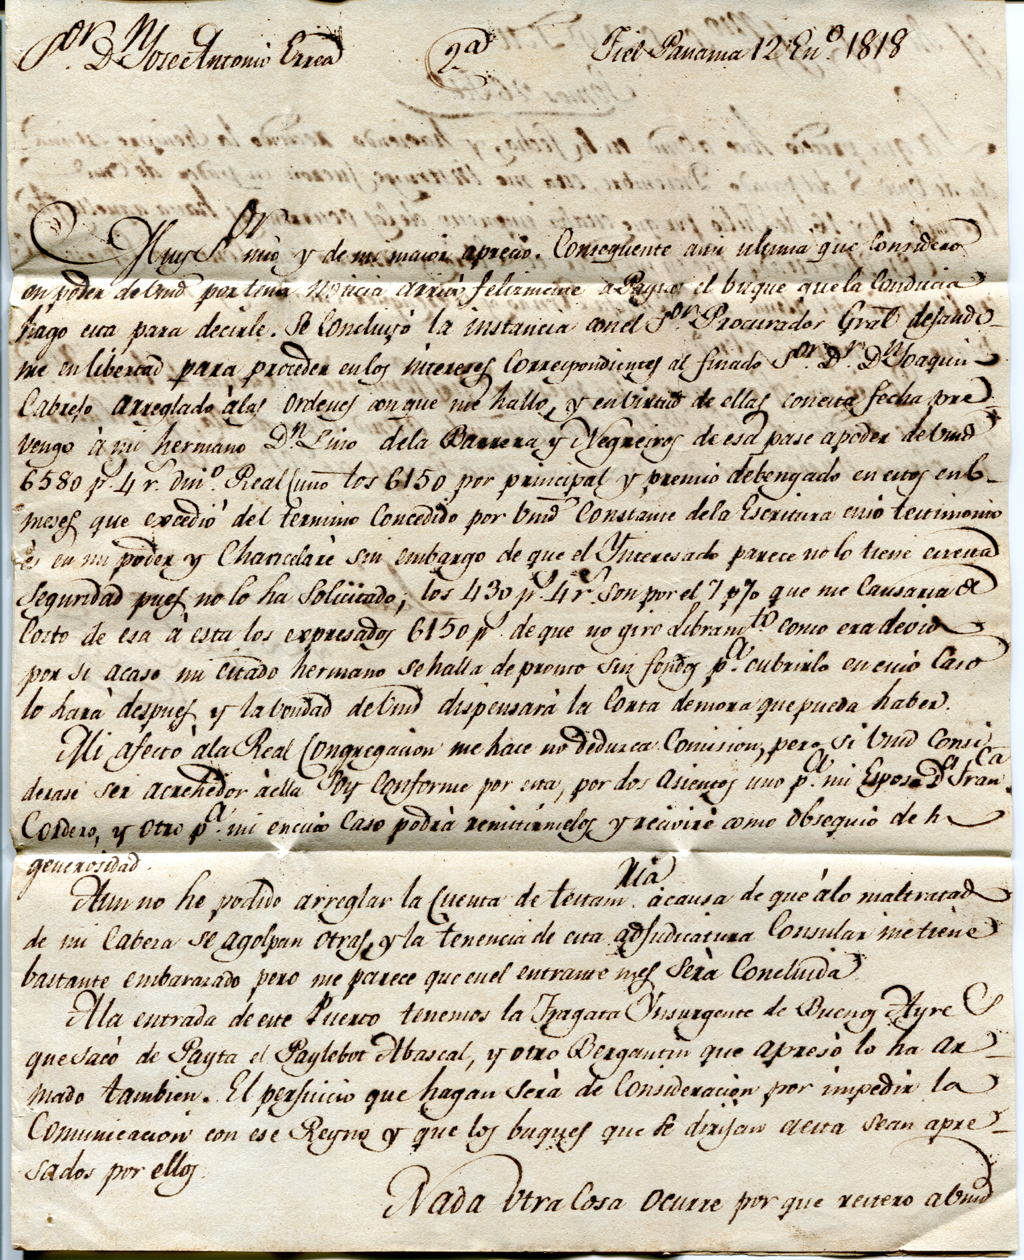 Sor. Dn Jose Antonio Errea 2a Fiel Panama 12 Eno. 1818
Muy Sor mio y de mi maior aprecio. Consequente a mi ultima que considero
en poder de Vmd por tener noticia arrivó felizmente a Payta el buque que la conducia
hago esta para decirle. Se concluyó la instancia con el Sor. Procurador Gral dejando-
me en libertad para proceder en los intereses correspondientes al finado Sor. Dr. Dn Joaquin
Cabrejo arreglado à las ordenes con que me hallo, y en virtud de ellas con esta fecha pre
vengo à mi hermano Dn. Lino de la Barrera y Negreiros de esa pase a poder de Vmd
6580 ps. 4 rs. dino. Real Cuño los 6150 por principal y premio debengado en estos en 6-
meses que excedió del termino concedido por Vmd constante de la Escritura cuio testimonio
es en mi poder y Chancelaré sin embargo de que el Ynteresado parece no lo tiene en esta
seguridad pues no lo ha solicitado; los 430 ps. 4 rs. son por el 7 p% que me causaria el
Costo de esa à esta los expresados 6150 ps. de que no giro libramto. como era devido
por si acaso mi citado hermano se halla de pronto sin fondos pa. cubrirlo en cuio caso
lo hará despues y la bondad de Vmd dispensará la corta demora que pueda haber.
Mi afecto à la Real Congregacion me hace no dedusca Comision, pero si Vmd consi
derase ser acrehedor à ella soy conforme por esta, por dos asientos uno pa. mi Esposa Da Franca
Cordero, y otro pa. mi en cuio caso podrà remitirmelos y reciviré como obsequio de
generosidad.
Aun no he podido arreglar la Cuenta de testamria. à causa de que à lo maltratad
de mi Cabeza se agolpan otras, y la tenencia de esta adjudicatura Consular me tiene
bastante embarazado pero me parece que en el entrante mes serà concluida
A la entrada de este Puerto tenemos la Fragata Ynsurgente de Buenos Ayres
que sacó de Payta el Paylebot Abascal, y otro Bergantin que apresó lo ha ar-
mado tambien. El perjuicio que hagan será de consideracion por impedir la
Comunicacion con ese Reyno y que los buques que se dirijan a esta sean apre-
sados por ellos.
Nada otra cosa ocurre por que reitero a Vmd